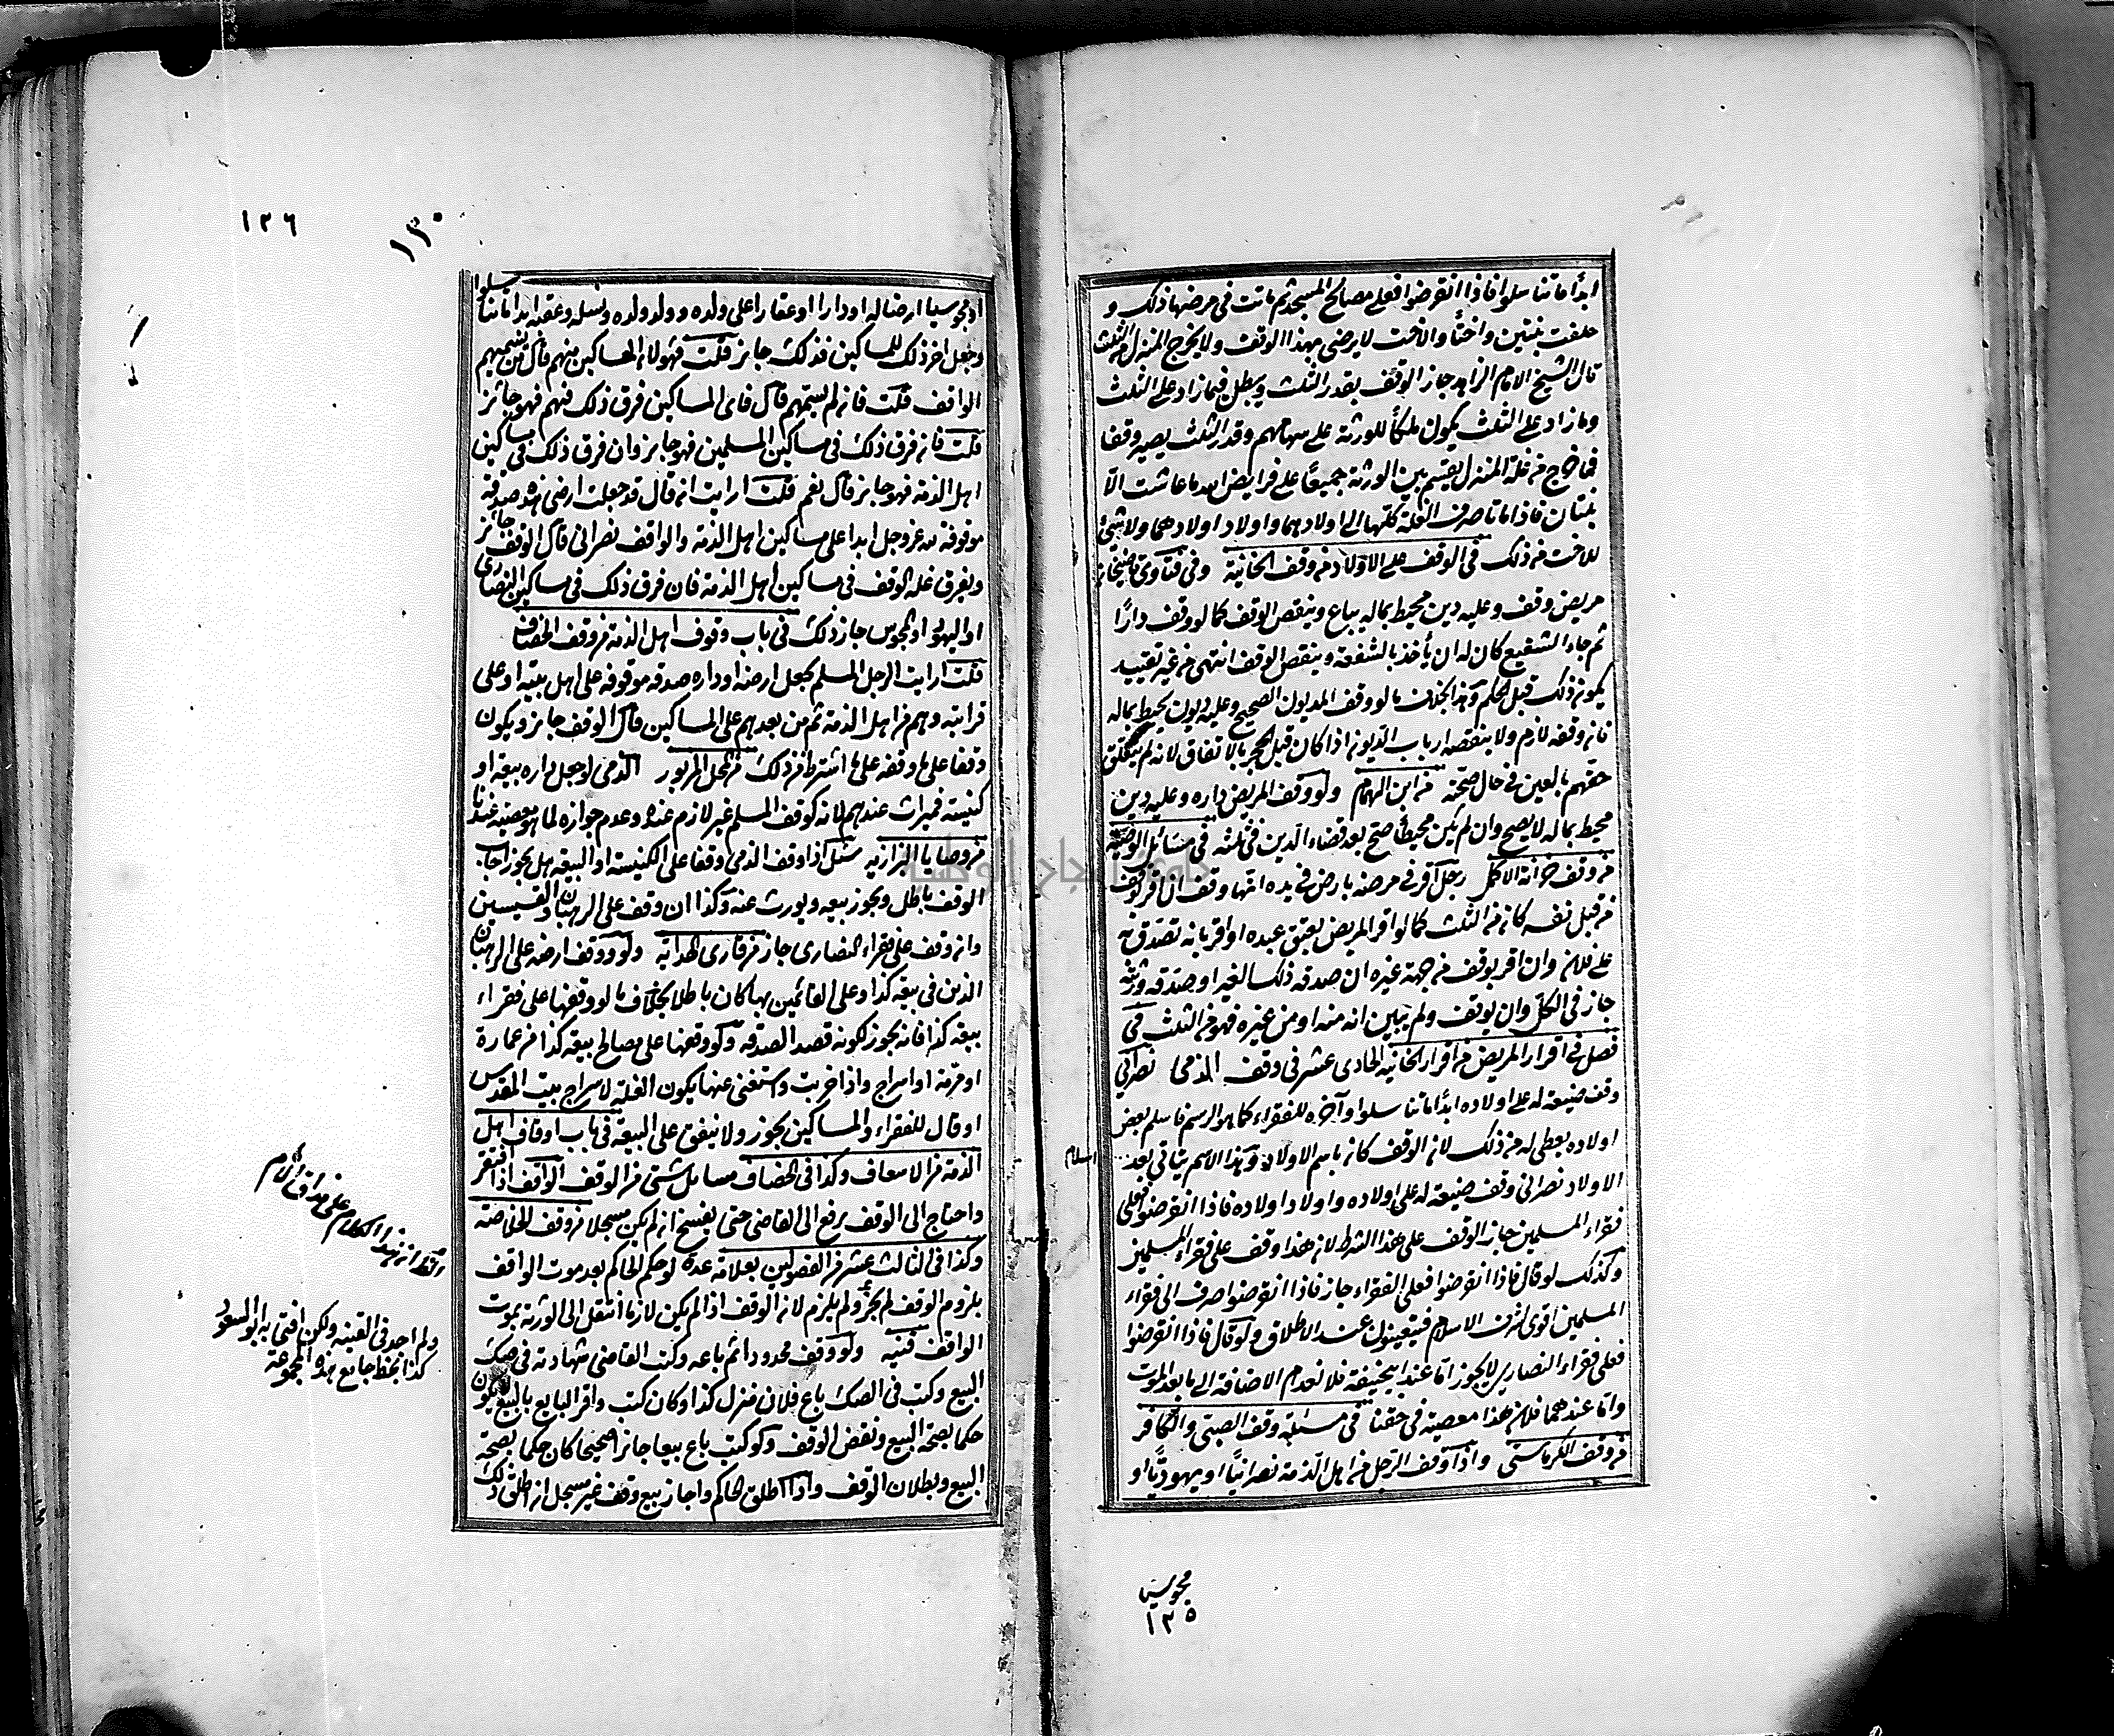 ابدا ما تناسلوا فاذا انقرضوا فعلى مصالح المسجد ثم ماتت في مرضها ذلك و
خلفت بنتين واختا والاخت لا يرضى بهذا الوقف ولا يخرج المنزل من الثلث
قال الشيخ الامام الزاهد جاز الوقف بقدر الثلث ويبطل فيما زاد على الثلث
وما زاد على الثلث يكون ملكا للورثة على سهامهم وقدر الثلث يصير وقفا
فما خرج من غلة المنزل يقسم بين الورثة جميعا على فرايض الله ما عاشت الا
بنتان فاذا ماتا صرف الغلة كلها الى اولادهما واولاد اولادهما ولا شئ
للاخت من ذلك في الوقف على الاولاد من وقف الخانية وفي فتاوى قاضيخان
مريض وقف وعليه دين محيط بماله يباع وينقض الوقف كما لو وقف دارا
ثم جاء الشفيع كان له ان يأخذ بالشفعة وينقض الوقف انتهى من غير تقييد
بكون ذلك قبل الحكم وهذا بخلاف ما لو وقف المديون الصحيح وعليه ديون يحيط بماله
فان وقفه لازم ولا ينقضه ارباب الديون اذا كان قبل الحجر بالاتفاق لانه لم يتعلق
حقهم بالعين في حال صحته من ابن الهمام ولو وقف المريض داره وعليه دين
محيط بماله لا يصح وان لم يكن محيطا صح بعد قضاء الدين في ثلثه في مسائل الوصية
من وقف خزانة الاكمل رجل اقر في مرضه بارض في يده انها وقف ان اقر بوقف
من قبل نفسه كان من الثلث كما لو اقر المريض بعتق عبده او اقر بانه تصدق به
على فلان وان اقر بوقف من جهة غيره ان صدقه ذلك الغير او صدقه ورثته
جاز في الكل وان يوقف ولم يبين انه منه او من غيره فهو من الثلث في
فصل في اقرار المريض من اقرار الخانية الحادى عشر في وقف الذمى نصراني
وقف ضيعة له على اولاده ابدا ما تناسلوا وآخره للفقراء كما هو الرسم فاسلم بعض
اولاده يعطى له من ذلك لان الوقف كان باسم الاولاد وهذا الاسم باقي بعد
اسلام
الاولاد نصراني وقف ضيعة له على اولاده واولاد اولاده فاذا انقرضوا فعلى
فقراء المسلمين جاز الوقف على هذا الشرط لان هذا وقف على فقراء المسلمين
وكذلك لو قال فاذا انقرضوا فعلى الفقراء جاز فاذا انقرضوا صرف الى فقراء
المسلمين اقوى لشرف الاسلام فيتعينون عند الاطلاق ولو قال فاذا انقرضوا
فعلى فقراء النصارى لا يجوز اما عند ابيحنيفة فلانعدام الاضافة الى ما بعد الموت
واما عندهما فلان هذا معصية في حقنا في مسئلة وقف الصبى والكافر
من وقف الكرماستى واذا وقف الرجل من اهل الذمة نصرانيا او يهوديا او
مجوسيا
١٢٥
١٢٦
١٣٠
او مجوسيا ارضا له او دارا او عقارا على ولده وولد ولده ونسله وعقبه ابدا ما تناسلوا
وجعل اخر ذلك للمساكين فذلك جائز قلت فهولاء المساكين منهم قال من يسميهم
الواقف قلت فان لم يسمهم قال فاى المساكين فرق ذلك فيهم فهو جائز
قلت فان فرق ذلك في مساكين المسلمين فهو جائز وان فرق ذلك في مساكين
اهل الذمة فهو جائز قال نعم قلت ارايت ان قال قد جعلت ارضى هذه صدقة
موقوفة لله عز وجل ابدا على مساكين اهل الذمة والواقف نصرانى قال الوقف جائز
ويفرق غلة الوقف في مساكين اهل الذمة فان فرق ذلك في مساكين النصارى
او اليهود او المجوس جاز ذلك في باب وقوف اهل الذمة من وقف الخصاف
قلت ارايت الرجل المسلم يجعل ارضه او داره صدقة موقوفة على اهل بيته او على
قرابته وهم من اهل الذمة ثم من بعدهم على المساكين قال الوقف جائز ويكون
وقفا على ما وقفه على ما اشترط من ذلك من المحل المزبور الذمى لو جعل داره بيعة او
كنيسة فميراث عندهم لانه كوقف المسلم غير لازم عنده وعدم جوازه لما هو معصية عندنا
من وصايا البزازيه سئل اذا وقف الذمى وقفا على الكنيسة او البيعة هل يجوز اجاب
الوقف باطل ويجوز بيعه ويورث عنه وكذا ان وقف على الرهبان والقسيسين
وان وقف على فقراء النصارى جاز من قارى الهداية ولو وقف ارضه على الرهبان
الذين في بيعة كذا وعلى القائمين بها كان باطلا بخلاف ما لو وقفها على فقراء
بيعة كذا فانه يجوز لكونه قصد الصدقة ولو وقفها على مصالح بيعة كذا من عمارة
او مرمة او اسراج واذا خربت واستغنى عنها يكون الغلة لاسراج بيت المقدس
او قال للفقراء والمساكين يجوز ولا ينفق على البيعة في باب اوقاف اهل
الذمة من الاسعاف وكذا في الخصاف مسائل شتى من الوقف الواقف اذا افتقر
واحتاج الى الوقف يرفع الى القاضى حتى يفسخ ان لم يكن مسجلا من وقف الخلاصة
وكذا في الثالث عشر من الفصولين بعلامة عدة لو حكم الحاكم بعد موت الواقف
بلزوم الوقف لم يجز ولم يلزم لان الوقف اذا لم يكن لازما انتقل الى الورثة بموت
الواقف قنيه ولو وقف محدودا ثم باعه وكتب القاضى شهادته في صك
البيع وكتب في الصك باع فلان منزل كذا وكان كتب واقر البايع بالبيع لا يكون
حكما بصحة البيع ونقض الوقف ولو كتب باع بيعا جائزا صحيحا كان حكما بصحة
البيع وبطلان الوقف واذا اطلق الحاكم واجاز بيع وقف غير مسجل ان اطلق ذلك
ولم اجد في القنيه ولكن افتى به ابو السعود
كذا بخط جامع هذه المجموعة